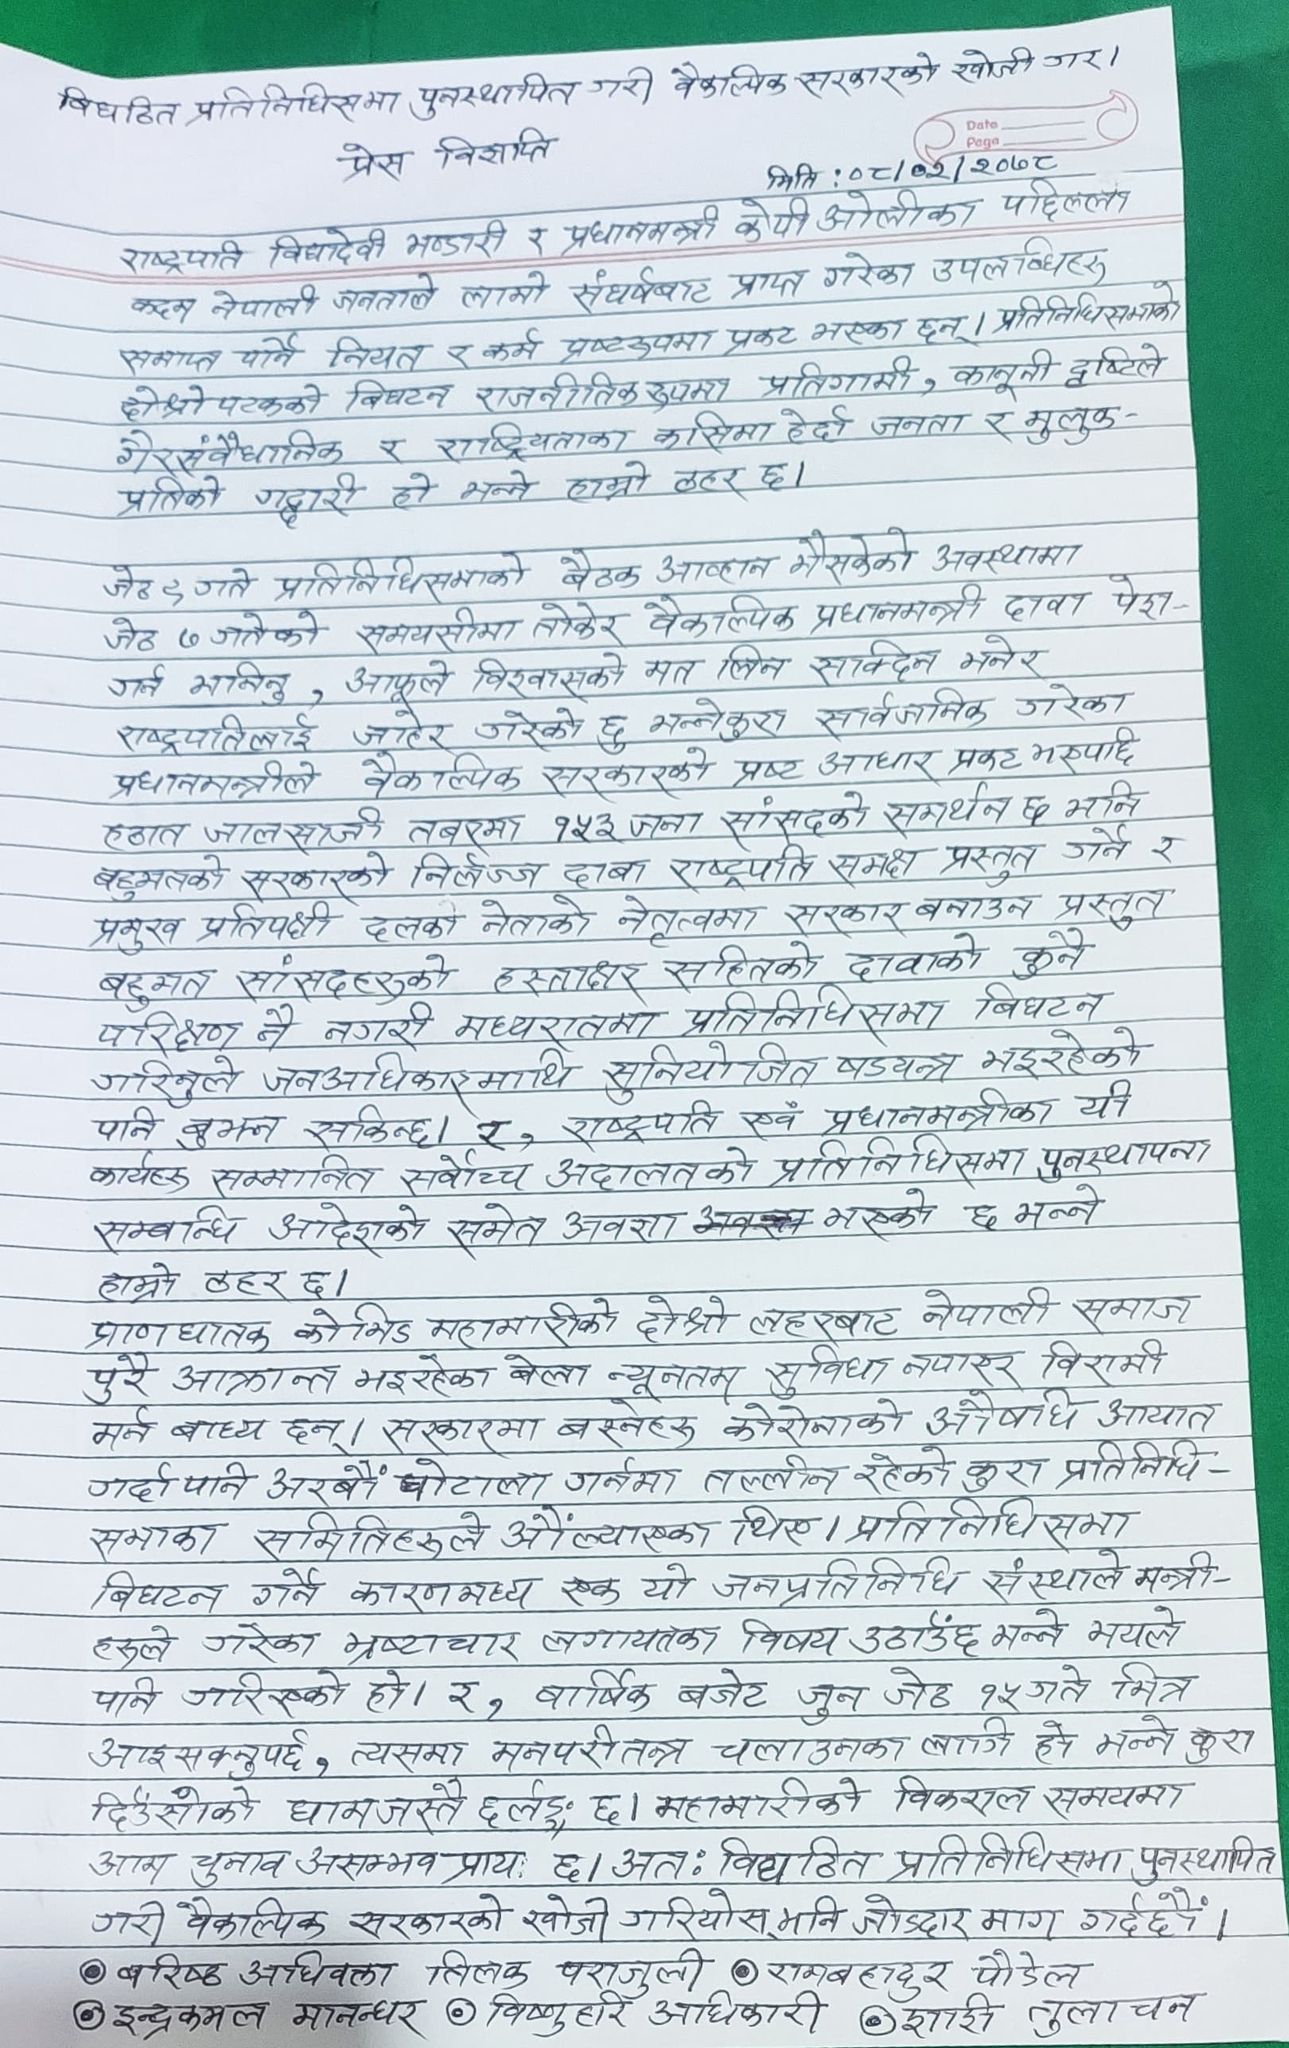 बिघठित प्रतिनिधिसभा पुनस्थापित गरी वैकल्पिक सरकारको खोजी गर।
Date
Page
प्रेस विज्ञप्ति
मिति : ०८/०२/२०७८
राष्ट्रपति विद्यादेवी भण्डारी र प्रधानमन्त्री केपी ओलीका पछिल्ला
कदम नेपाली जनताले लामो संघर्षबाट प्राप्त गरेका उपलब्धिहरु
समाप्त पार्ने नियत र कर्म प्रष्टरुपमा प्रकट भएका छन्। प्रतिनिधिसभाको
दोश्रो पटकको बिघटन राजनीतिक रुपमा प्रतिगामी, कानूनी दृष्टिले
गैरसंवैधानिक र राष्ट्रियताका कसिमा हेर्दा जनता र मुलुक-
प्रतिको गद्दारी हो भन्ने हाम्रो ठहर छ।
जेठ ८ गते प्रतिनिधिसभाको बैठक आव्हान भैसकेको अवस्थामा
जेठ ७ गतेको समयसीमा तोकेर वैकल्पिक प्रधानमन्त्री दावा पेश-
गर्न भनिनु, आफूले विश्वासको मत लिन सक्दिन भनेर
राष्ट्रपतिलाई जाहेर गरेको छु भन्नेकुरा सार्वजनिक गरेका
प्रधानमन्त्रीले वैकल्पिक सरकारको प्रष्ट आधार प्रकट भएपछि
हठात जालसाजी तबरमा १५३ जना सांसदको समर्थन छ भनि
बहुमतको सरकारको निर्लज्ज दाबा राष्ट्रपति समक्ष प्रस्तुत गर्ने र
प्रमुख प्रतिपक्षी दलको नेताको नेतृत्वमा सरकार बनाउन प्रस्तुत
बहुमत सांसदहरुको हस्ताक्षर सहितको दावाको कुनै
परिक्षण नै नगरी मध्यरातमा प्रतिनिधिसभा बिघटन
गरिनुले जनअधिकारमाथि सुनियोजित षडयन्त्र भइरहेको
पनि बुझ्न सकिन्छ। र, राष्ट्रपति एवं प्रधानमन्त्रीका यी
कार्यहरु सम्मानित सर्वोच्च अदालतको प्रतिनिधिसभा पुनस्थापना
सम्बन्धि आदेशको समेत अवज्ञा भएको छ भन्ने
हाम्रो ठहर छ।
प्राणघातक कोभिड महामारीको दोश्रो लहरबाट नेपाली समाज
पुरै आक्रान्त भइरहेका बेला न्यूनतम् सुविधा नपाएर विरामी
मर्न बाध्य छन्। सरकारमा बस्नेहरु कोरोनाको औषधि आयात
गर्दा पनि अरबौं घोटाला गर्नमा तल्लीन रहेको कुरा प्रतिनिधि-
सभाका समितिहरुले औंल्याएका थिए। प्रतिनिधिसभा
बिघटन गर्ने कारणमध्य एक यो जनप्रतिनिधि संस्थाले मन्त्री-
हरुले गरेका भ्रष्टाचार लगायतका विषय उठाउँछ भन्ने भयले
पनि गरिएको हो। र, बार्षिक बजेट जुन जेठ १५ गते भित्र
आइसक्नुपर्छ, त्यसमा मनपरीतन्त्र चलाउनका लागि हो भन्ने कुरा
दिउँसोको घामजस्तै छर्लङ्ग छ। महामारीको विकराल समयमा
आम चुनाव असम्भव प्रायः छ। अतः विघठित प्रतिनिधिसभा पुनस्थापित
गरी वैकल्पिक सरकारको खोजी गरियोस् भनि जोडदार माग गर्दछौं।
बरिष्ठ अधिवक्ता तिलक पराजुली रामबहादुर पौडेल
इन्द्रकमल मानन्धर विष्णुहरि अधिकारी शशी तुलाचन